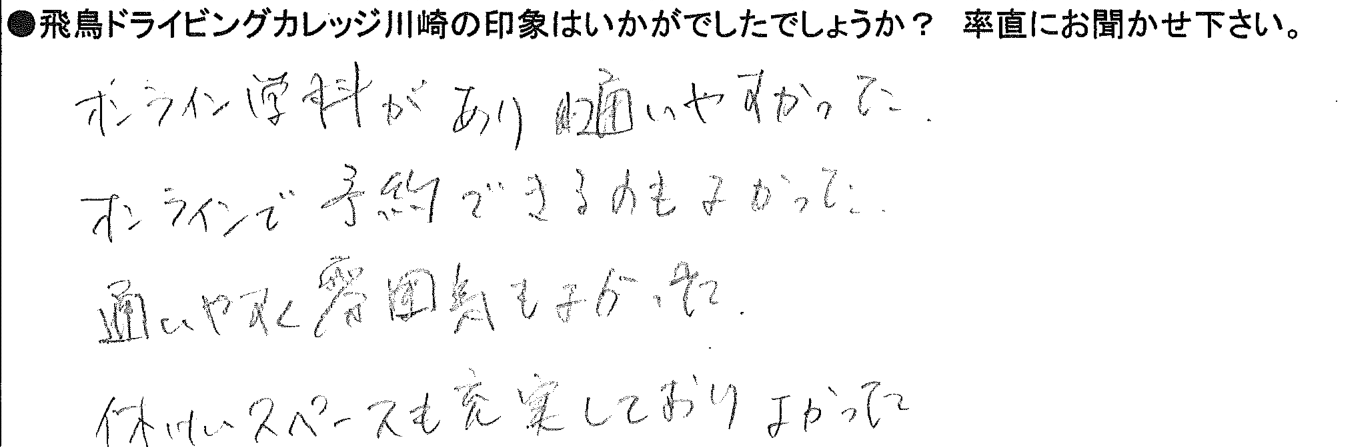 ●飛鳥ドライビングカレッジ川崎の印象はいかがでしたでしょうか? 率直にお聞かせ下さい。
オンライン学科があり通いやすかった.
オンラインで予約できるのもよかった.
通いやすく雰囲気もよかった.
休けいスペースも充実しておりよかった